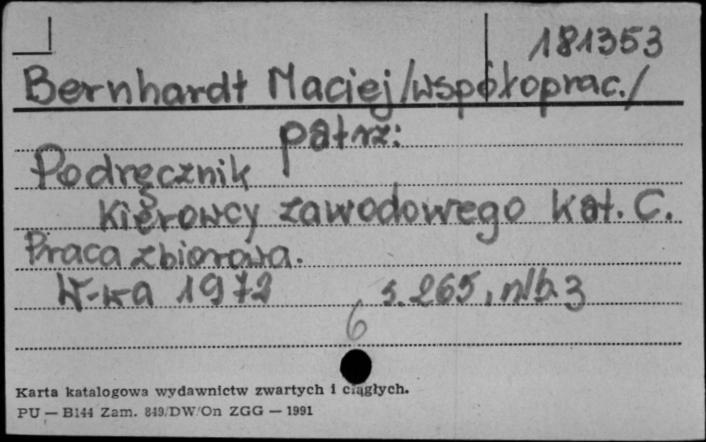 181353
Bernhardt Maciej /współoprac./
patrz:
Podręcznik
kierowcy zawodowego kat. C.
Praca zbiorowa.
W-wa 1972 s. 265, nlb. 3
6
Karta katalogowa wydawnictw zwartych i ciągłych.
PU — B144 Zam. 849/DW/On ZGG — 1991